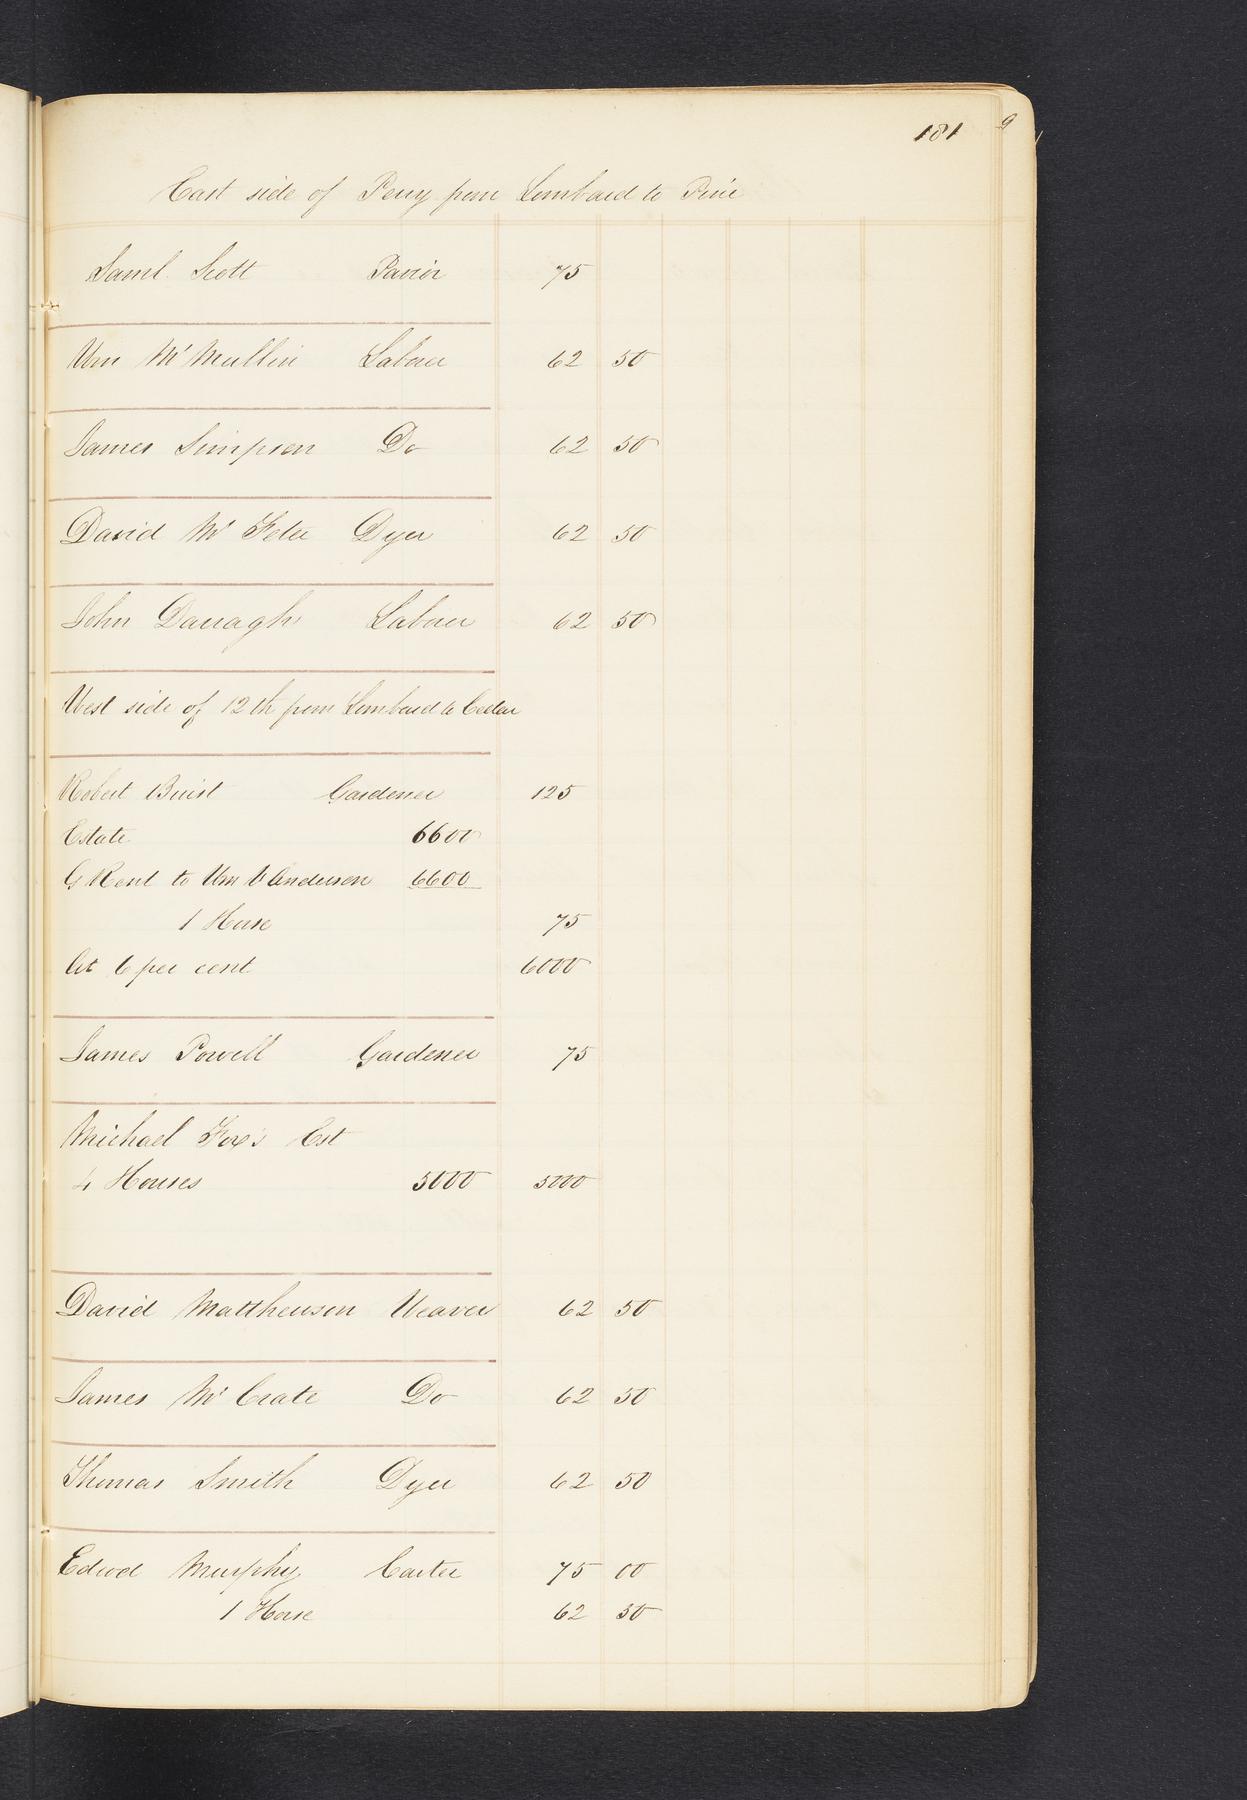 181
East side of Perry from Lombard to Pine
Saml Scott Pavior 75
Wm Mc Mullin Labour 62 50
James Simpson Do 62 50
David Mc Fetee Dyer 62 50
John Darragh Labour 62 50
West side of 12th from Lombard to Cedar
Robert Buist Gardener 125
Estate 6600
G Rent to Wm V Anderson 6600
1 Horse 75
At 6 per cent 6000
James Powell Gardener 75
Michael Fox's Est
4 Houses 5000 5000
David Matthewson Weaver 62 50
James Mc Crate Do 62 50
Thomas Smith Dyer 62 50
Edwd Murphy Carter 75 00
1 Horse 62 50